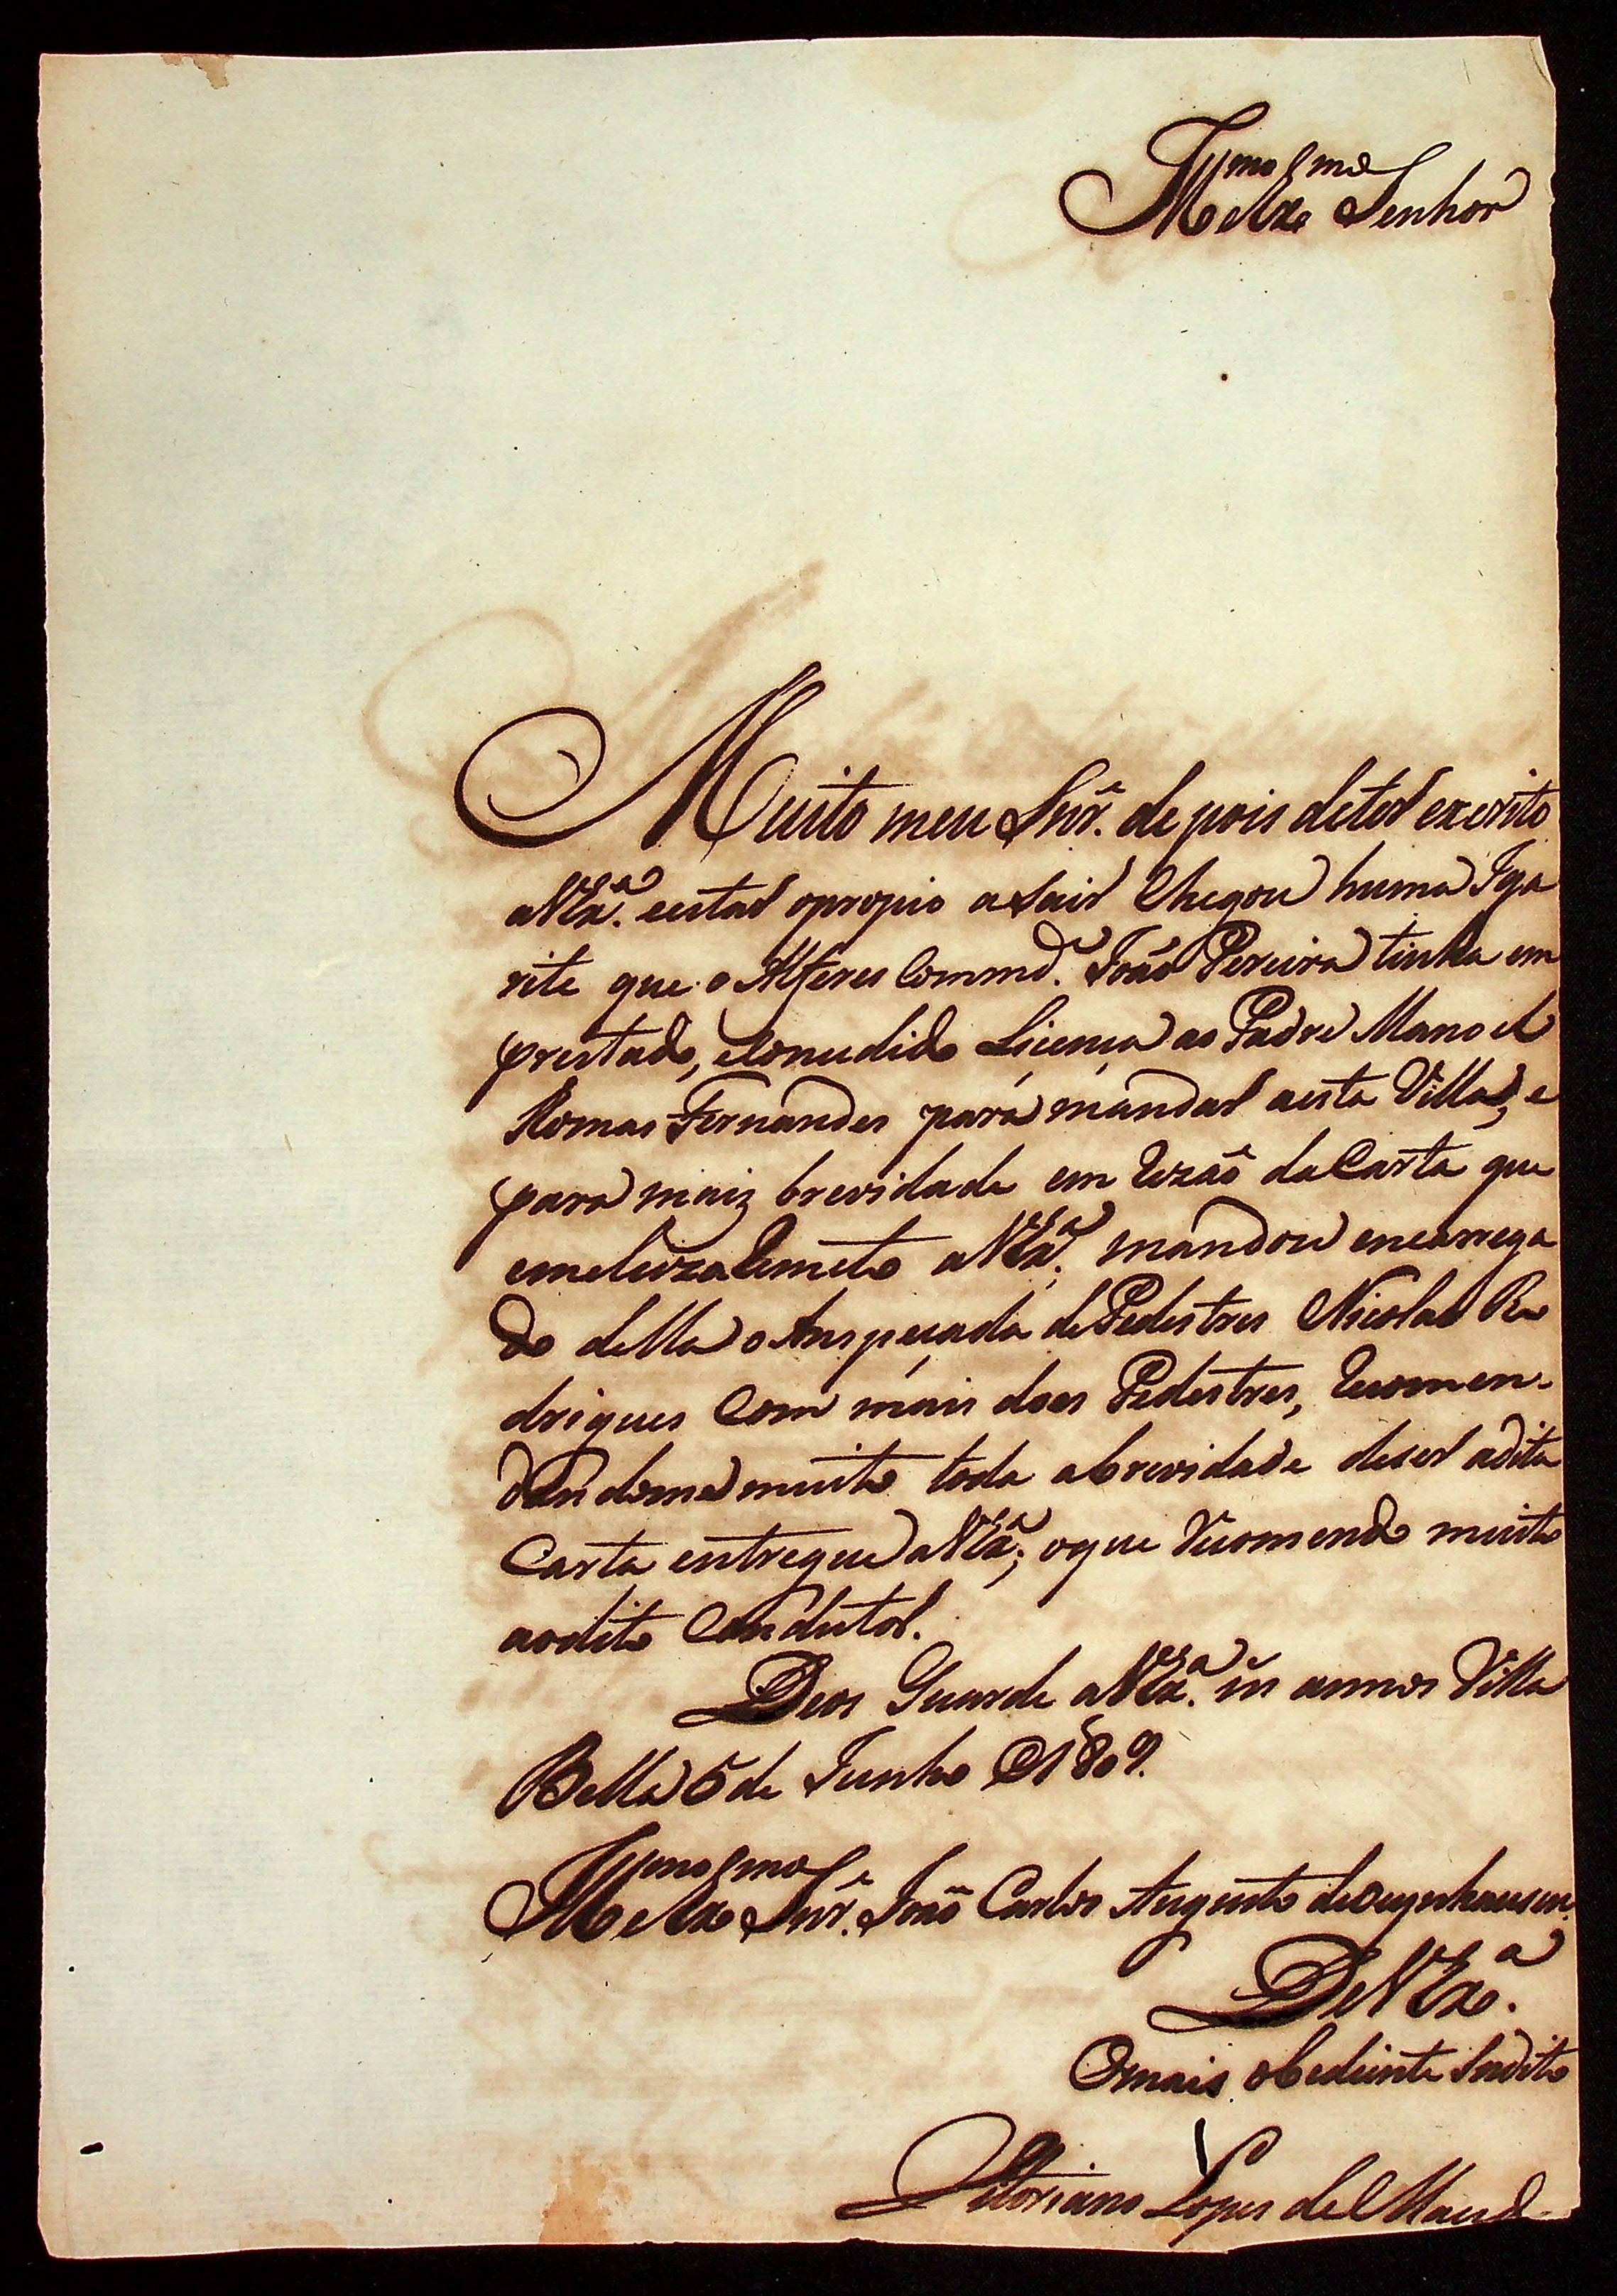 Ill.mo e Ex.mo Senhor
Muito meu Snr. de pois deter escrito
aVEx.a estar opropio a sair Chegou huma Iga
rite que o Alferes Commd.e João Pereira tinha em
prestado, e Consedido Licença ao Padre Manoel
Romao Fernandes para mandar aesta Villa, e
para maiz brevidade em rezão da Carta que
remeto aVEx.a mandou encarrega
do della o Anspeçada de Pedestres Nicolao Ro
drigues Com mais does Pedestres, recomen-
dandome muito toda abrevidade deser adita
Carta entregue aVEx.a; oque recomendo muito
aodito Condutor.
Deos Guarde aVEx.a annos Villa
Bella 5 de Junho 1809.
Ill.mo e Ex.mo Snr. João Carlos Augusto deOeynhausen.
DeVEx.a
Omais obediente Sudito
Vitoriano Lopes de